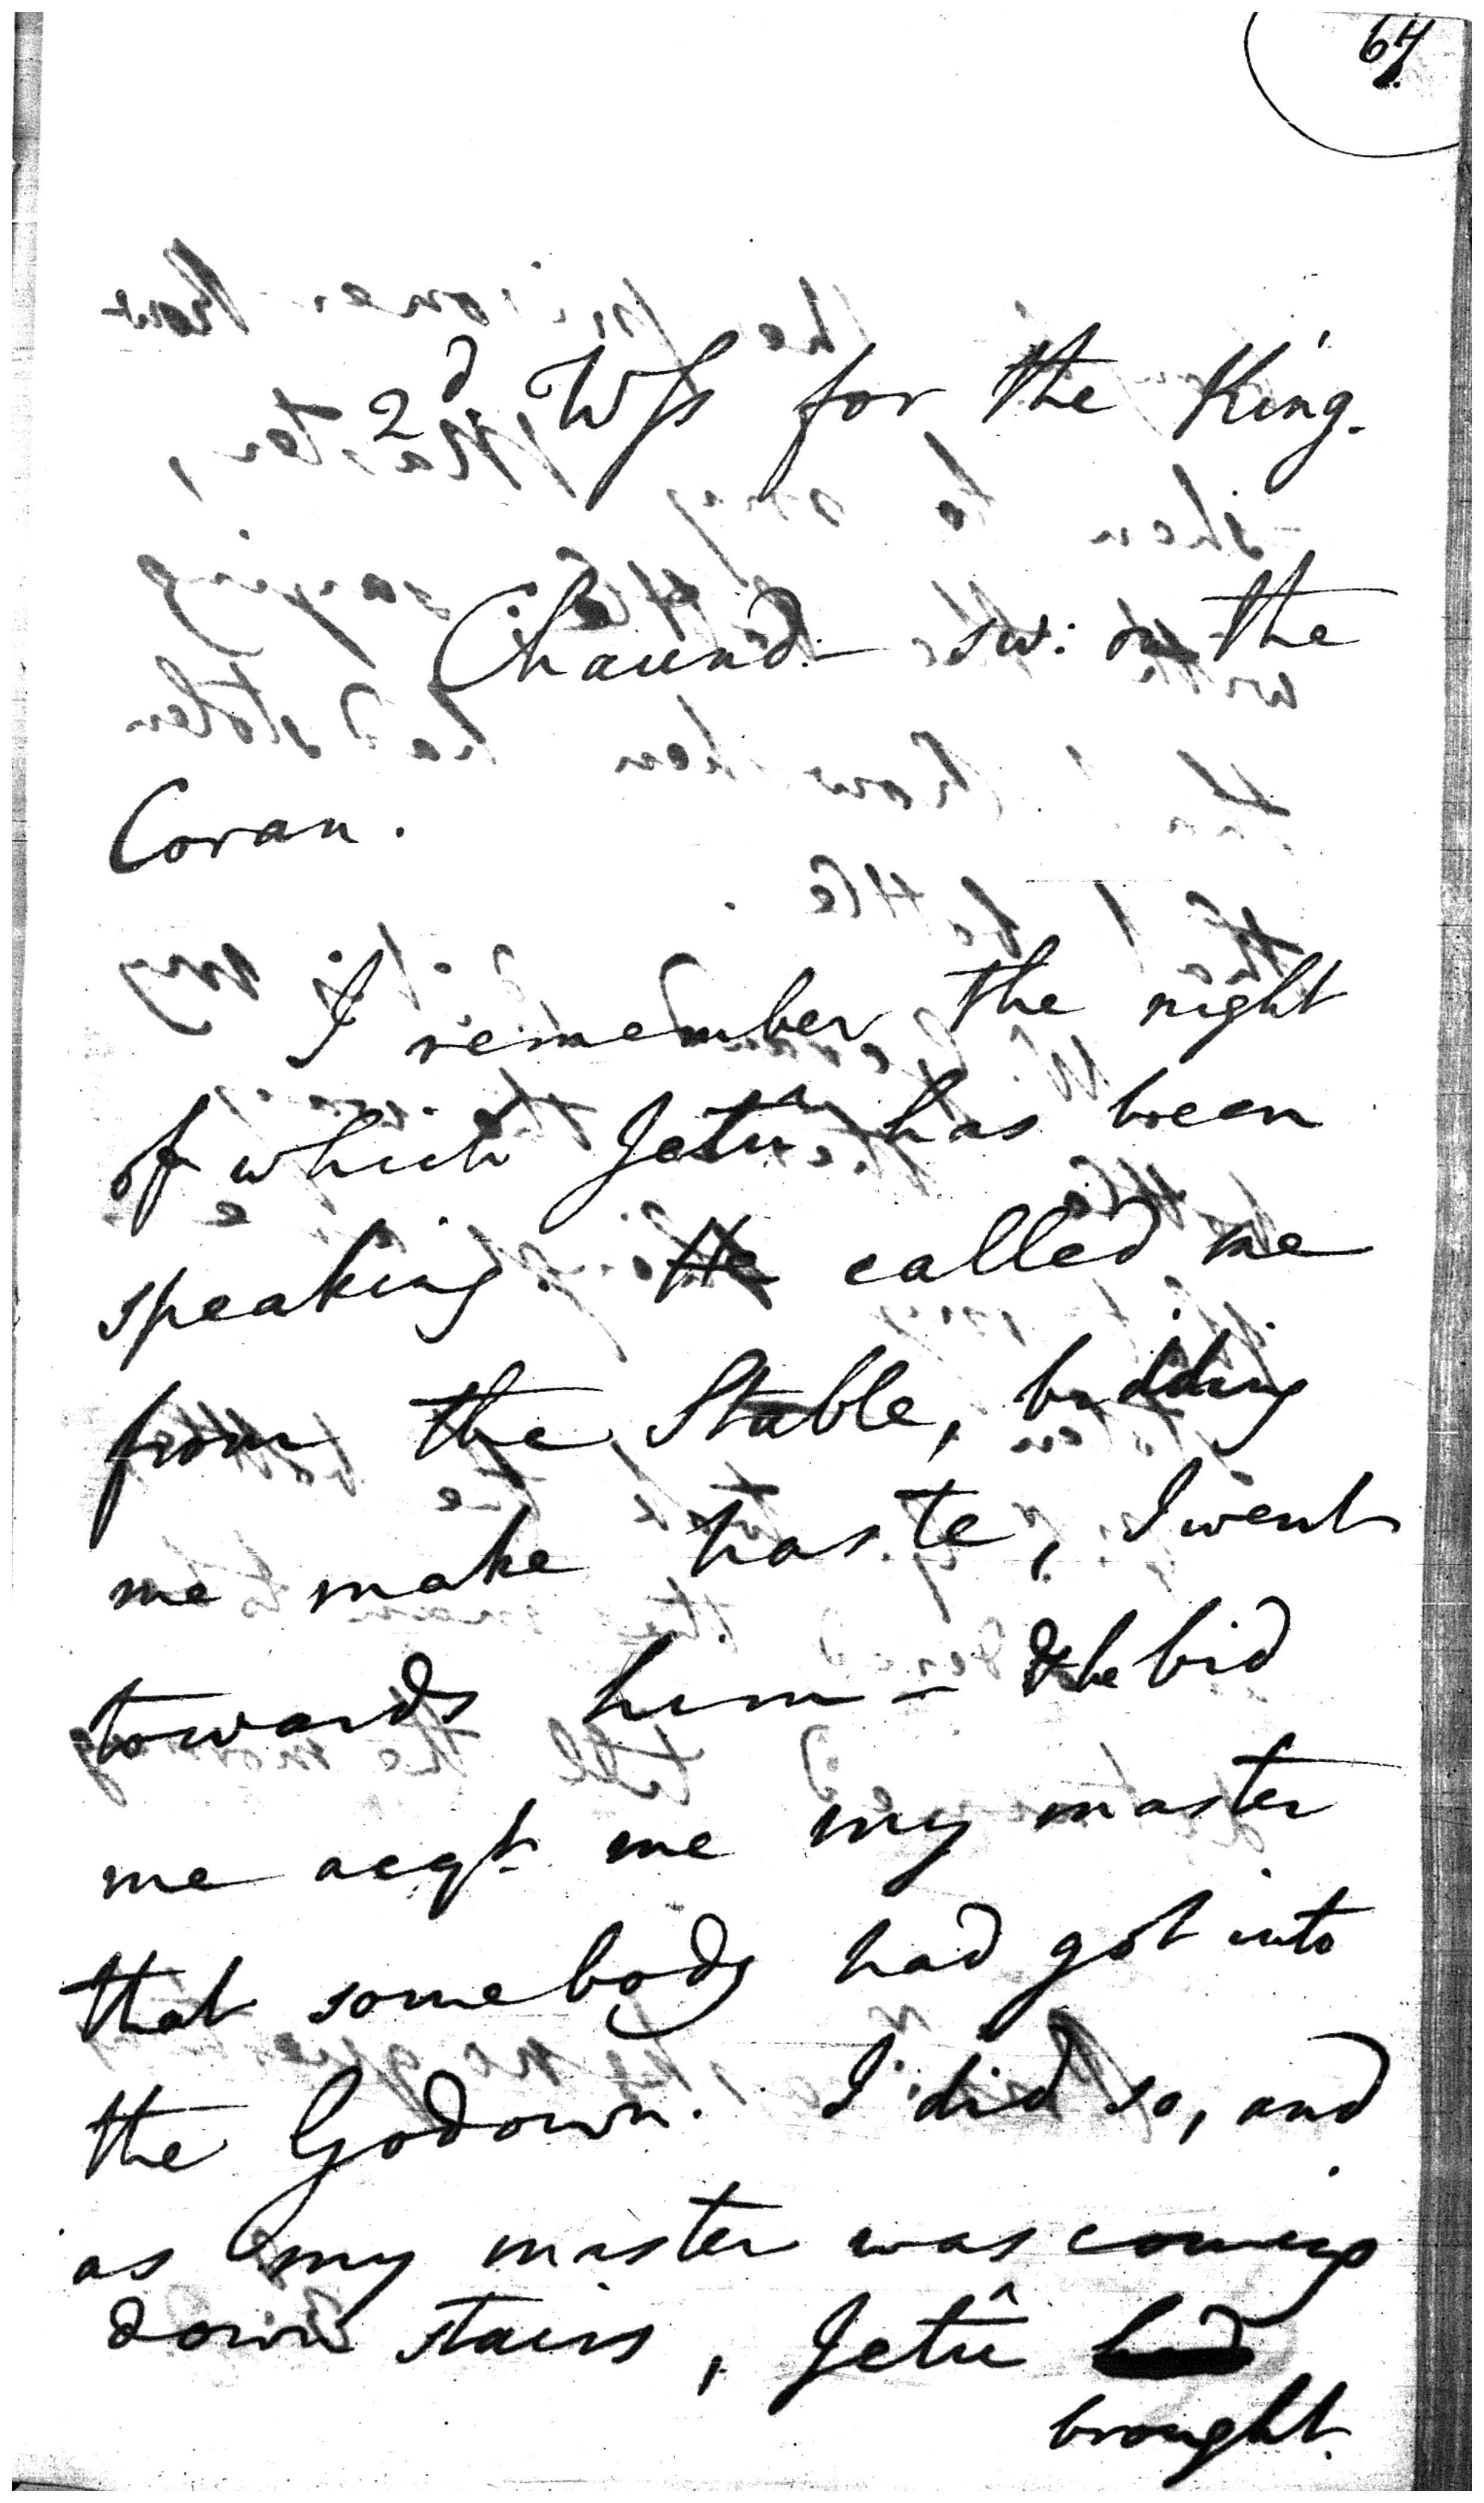 64
2d. Wss for the King.
Chaund sw: on the
Coran.
I remember the night
of which Jetû has been
speaking He called me
from the Stable, bidding
me make haste, I went
towards him – & he bid
me acqt. me my master
that somebody had got into
the Godown. I did so, and
as my master was coming
down stairs, Jetû had
brought